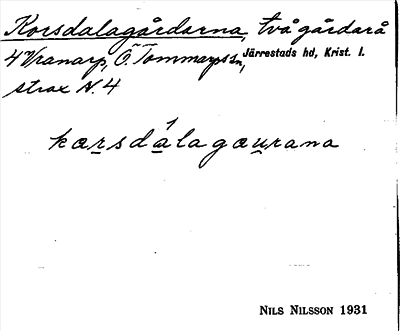 Korsdalagårdarna, två gårdar å
4 Vranarp, Ö. Tommarps sn, Järrestads hd, Krist. l.
strax N. 4
korsdálagaurana
NILS NILSSON 1931